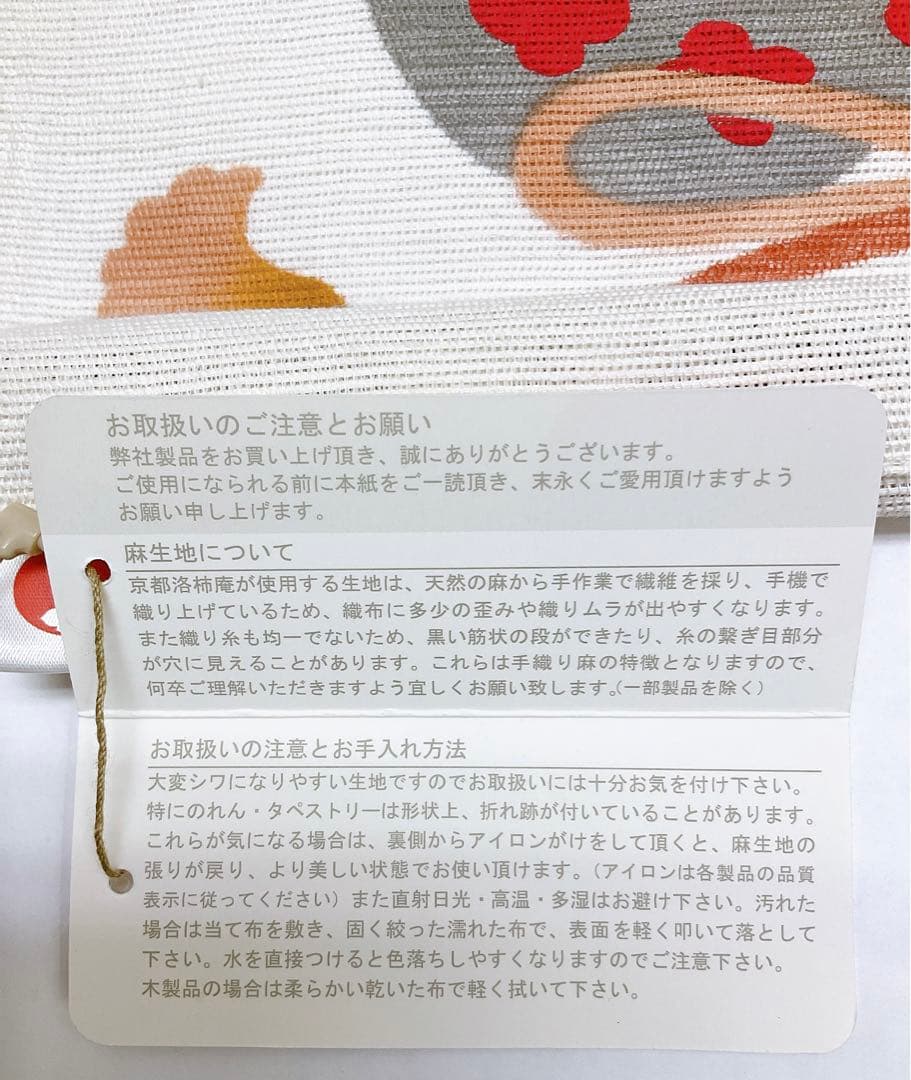 お取扱いのご注意とお願い
弊社製品をお買い上げ頂き、誠にありがとうございます。
ご使用になられる前に本紙をご一読頂き、末永くご愛用頂けますよう
お願い申し上げます。
麻生地について
京都洛柿庵が使用する生地は、天然の麻から手作業で繊維を採り、手機で
織り上げているため、織布に多少の歪みや織りムラが出やすくなります。
また織り糸も均一でないため、黒い筋状の段ができたり、糸の繋ぎ目部分
が穴に見えることがあります。これらは手織り麻の特徴となりますので、
何卒ご理解いただきますよう宜しくお願い致します。(一部製品を除く)
お取扱いの注意とお手入れ方法
大変シワになりやすい生地ですのでお取扱いには十分お気を付け下さい。
特にのれん・タペストリーは形状上、折れ跡が付いていることがあります。
これらが気になる場合は、裏側からアイロンがけをして頂くと、麻生地の
張りが戻り、より美しい状態でお使い頂けます。(アイロンは各製品の品質
表示に従ってください)また直射日光・高温・多湿はお避け下さい。汚れた
場合は当て布を敷き、固く絞った濡れた布で、表面を軽く叩いて落として
下さい。水を直接つけると色落ちしやすくなりますのでご注意下さい。
木製品の場合は柔らかい乾いた布で軽く拭いて下さい。